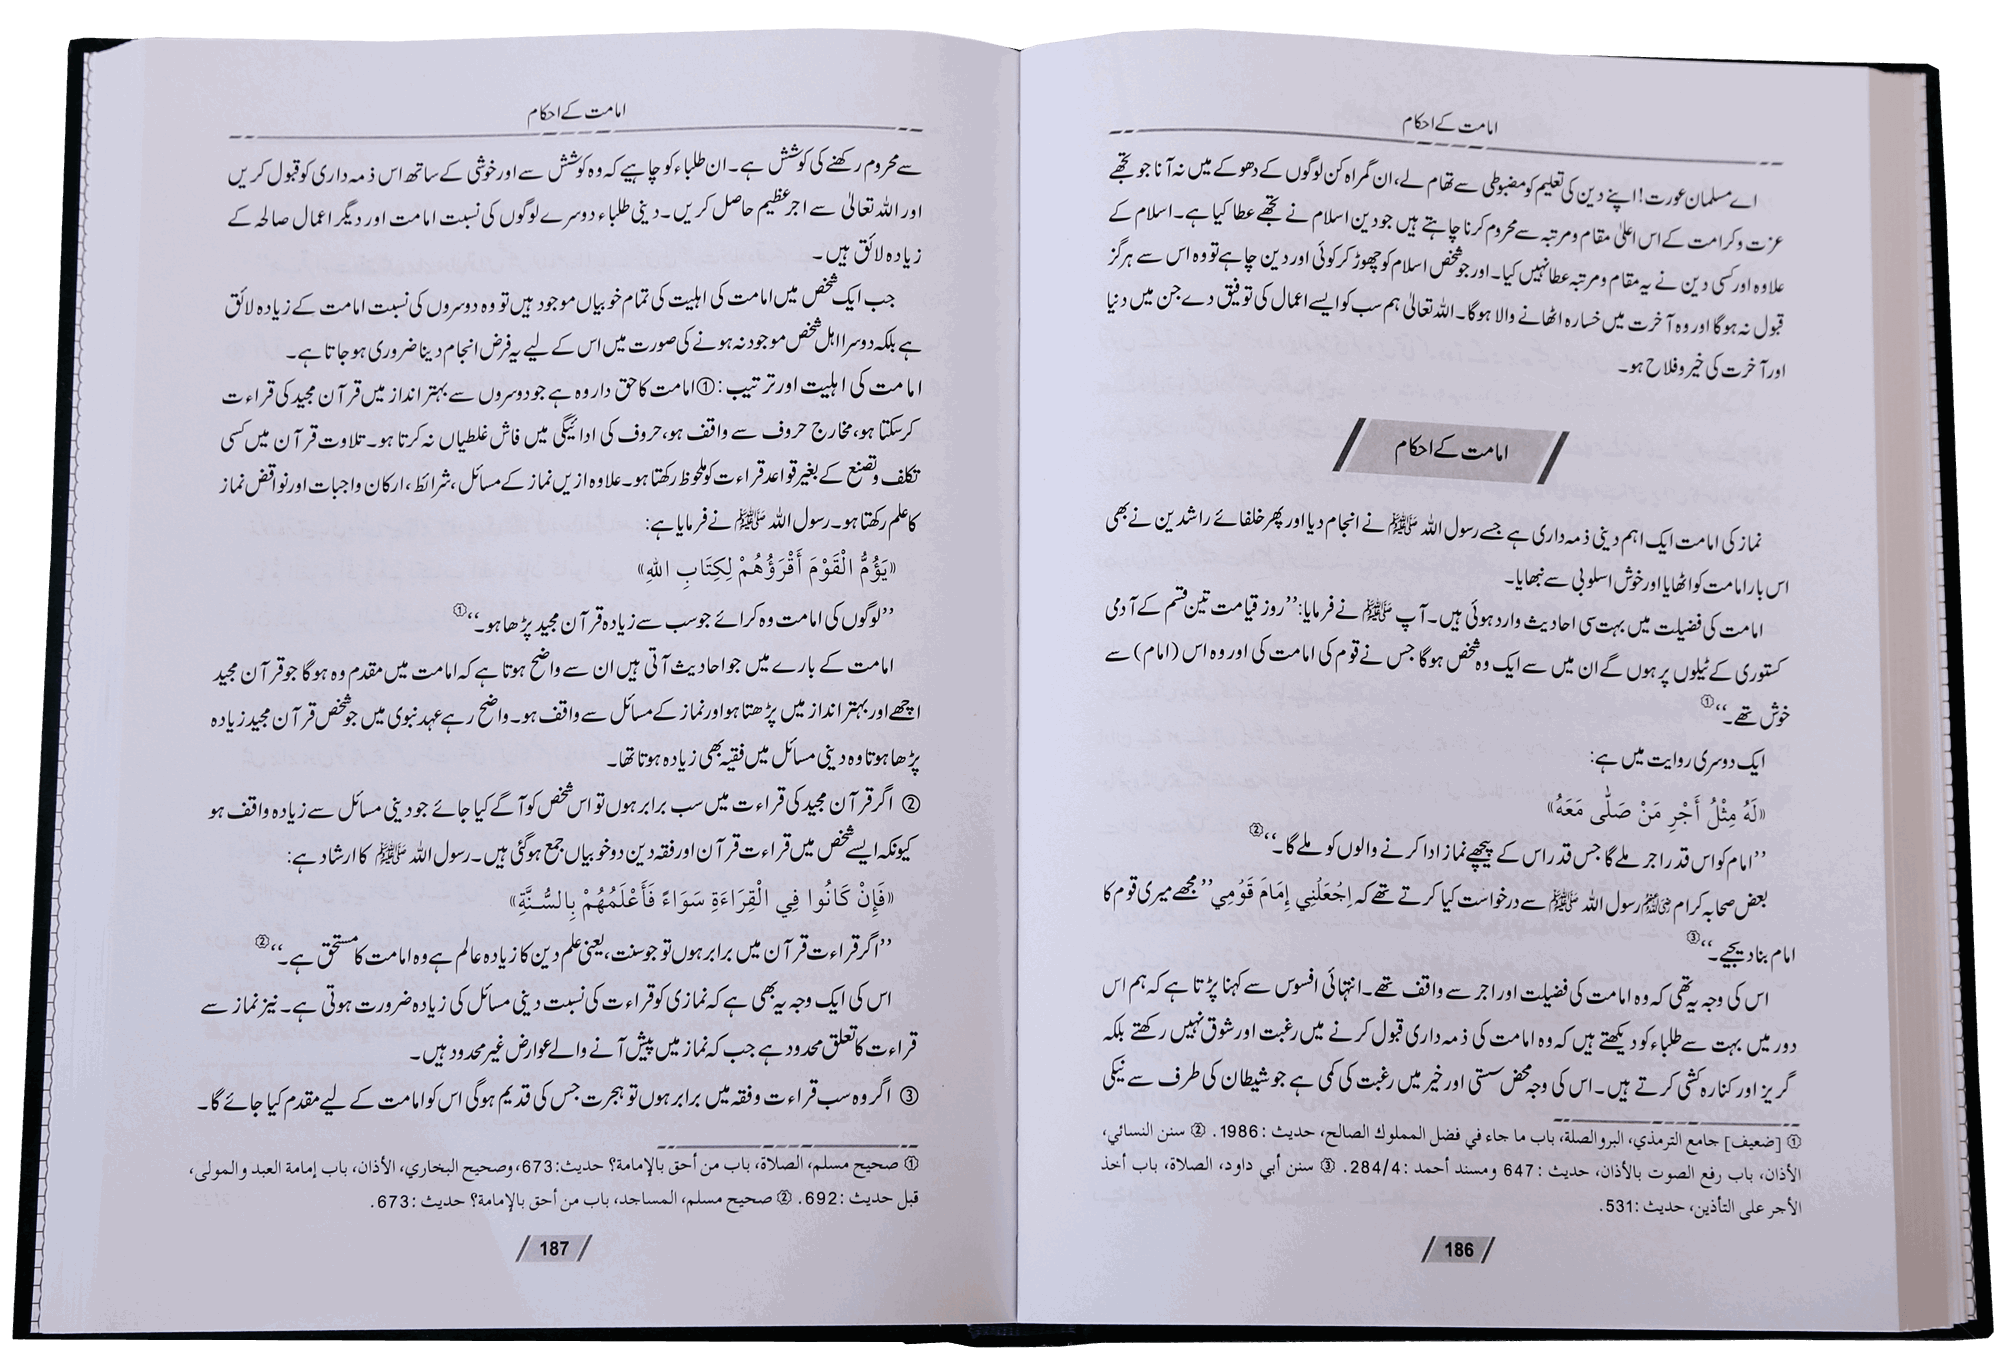 امامت کے احکام
اے مسلمان عورت! اپنے دین کی تعلیم کو مضبوطی سے تھام لے، ان گمراہ کن لوگوں کے دھوکے میں نہ آنا جو تجھے
عزت و کرامت کے اس اعلیٰ مقام و مرتبہ سے محروم کرنا چاہتے ہیں جو دین اسلام نے تجھے عطا کیا ہے۔ اسلام کے
علاوہ اور کسی دین نے یہ مقام و مرتبہ عطا نہیں کیا۔ اور جو شخص اسلام کو چھوڑ کر کوئی اور دین چاہے تو وہ اس سے ہرگز
قبول نہ ہوگا اور وہ آخرت میں خسارہ اٹھانے والا ہوگا۔ اللہ تعالیٰ ہم سب کو ایسے اعمال کی توفیق دے جن میں دنیا
اور آخرت کی خیر و فلاح ہو۔
امامت کے احکام
نماز کی امامت ایک اہم دینی ذمہ داری ہے جسے رسول اللہ ﷺ نے انجام دیا اور پھر خلفائے راشدین نے بھی
اس بار امامت کو اٹھایا اور خوش اسلوبی سے نبھایا۔
امامت کی فضیلت میں بہت سی احادیث وارد ہوئی ہیں۔ آپ ﷺ نے فرمایا: ’’روز قیامت تین قسم کے آدمی
کستوری کے ٹیلوں پر ہوں گے ان میں سے ایک وہ شخص ہوگا جس نے قوم کی امامت کی اور وہ اس (امام) سے
خوش تھے۔‘‘①
ایک دوسری روایت میں ہے:
«لَهُ مِثْلُ أَجْرِ مَنْ صَلَّى مَعَهُ»
’’امام کو اس قدر اجر ملے گا جس قدر اس کے پیچھے نماز ادا کرنے والوں کو ملے گا۔‘‘②
بعض صحابہ کرام رضی اللہ عنہم رسول اللہ ﷺ سے درخواست کیا کرتے تھے کہ اِجْعَلْنِي إِمَامَ قَوْمِي ’’مجھے میری قوم کا
امام بنا دیجیے۔‘‘③
اس کی وجہ یہ تھی کہ وہ امامت کی فضیلت اور اجر سے واقف تھے۔ انتہائی افسوس سے کہنا پڑتا ہے کہ ہم اس
دور میں بہت سے طلباء کو دیکھتے ہیں کہ وہ امامت کی ذمہ داری قبول کرنے میں رغبت اور شوق نہیں رکھتے بلکہ
گریز اور کنارہ کشی کرتے ہیں۔ اس کی وجہ محض سستی اور خیر میں رغبت کی کمی ہے جو شیطان کی طرف سے نیکی
① [ضعيف] جامع الترمذي، البر والصلة، باب ما جاء في فضل المملوك الصالح، حديث: 1986. ② سنن النسائي،
الأذان، باب رفع الصوت بالأذان، حديث: 647 ومسند أحمد: 284/4. ③ سنن أبي داود، الصلاة، باب أخذ
الأجر على التأذين، حديث: 531.
186
امامت کے احکام
سے محروم رکھنے کی کوشش ہے۔ ان طلباء کو چاہیے کہ وہ کوشش سے اور خوشی کے ساتھ اس ذمہ داری کو قبول کریں
اور اللہ تعالیٰ سے اجر عظیم حاصل کریں۔ دینی طلباء دوسرے لوگوں کی نسبت امامت اور دیگر اعمال صالحہ کے
زیادہ لائق ہیں۔
جب ایک شخص میں امامت کی اہلیت کی تمام خوبیاں موجود ہیں تو وہ دوسروں کی نسبت امامت کے زیادہ لائق
ہے بلکہ دوسرا اہل شخص موجود نہ ہونے کی صورت میں اس کے لیے یہ فرض انجام دینا ضروری ہو جاتا ہے۔
امامت کی اہلیت اور ترتیب: ① امامت کا حق دار وہ ہے جو دوسروں سے بہتر انداز میں قرآن مجید کی قراءت
کرسکتا ہو، مخارج حروف سے واقف ہو، حروف کی ادائیگی میں فاش غلطیاں نہ کرتا ہو۔ تلاوت قرآن میں کسی
تکلف و تصنع کے بغیر قواعد قراءت کو ملحوظ رکھتا ہو۔ علاوہ ازیں نماز کے مسائل، شرائط، ارکان واجبات اور نواقض نماز
کا علم رکھتا ہو۔ رسول اللہ ﷺ نے فرمایا ہے:
«يَؤُمُّ الْقَوْمَ أَقْرَؤُهُمْ لِكِتَابِ اللهِ»
’’لوگوں کی امامت وہ کرائے جو سب سے زیادہ قرآن مجید پڑھا ہو۔‘‘①
امامت کے بارے میں جو احادیث آتی ہیں ان سے واضح ہوتا ہے کہ امامت میں مقدم وہ ہوگا جو قرآن مجید
اچھے اور بہتر انداز میں پڑھتا ہو اور نماز کے مسائل سے واقف ہو۔ واضح رہے عہد نبوی میں جو شخص قرآن مجید زیادہ
پڑھا ہوتا وہ دینی مسائل میں فقیہ بھی زیادہ ہوتا تھا۔
② اگر قرآن مجید کی قراءت میں سب برابر ہوں تو اس شخص کو آگے کیا جائے جو دینی مسائل سے زیادہ واقف ہو
کیونکہ ایسے شخص میں قراءت قرآن اور فقہ دین دو خوبیاں جمع ہوگئی ہیں۔ رسول اللہ ﷺ کا ارشاد ہے:
«فَإِنْ كَانُوا فِي الْقِرَاءَةِ سَوَاءً فَأَعْلَمُهُمْ بِالسُّنَّةِ»
’’اگر قراءت قرآن میں برابر ہوں تو جو سنت، یعنی علم دین کا زیادہ عالم ہے وہ امامت کا مستحق ہے۔‘‘②
اس کی ایک وجہ یہ بھی ہے کہ نمازی کو قراءت کی نسبت دینی مسائل کی زیادہ ضرورت ہوتی ہے۔ نیز نماز سے
قراءت کا تعلق محدود ہے جب کہ نماز میں پیش آنے والے عوارض غیر محدود ہیں۔
③ اگر وہ سب قراءت و فقہ میں برابر ہوں تو ہجرت جس کی قدیم ہوگی اس کو امامت کے لیے مقدم کیا جائے گا۔
① صحيح مسلم، الصلاة، باب من أحق بالإمامة؟ حديث: 673، وصحيح البخاري، الأذان، باب إمامة العبد والمولى،
قبل حديث: 692. ② صحيح مسلم، المساجد، باب من أحق بالإمامة؟ حديث: 673.
187